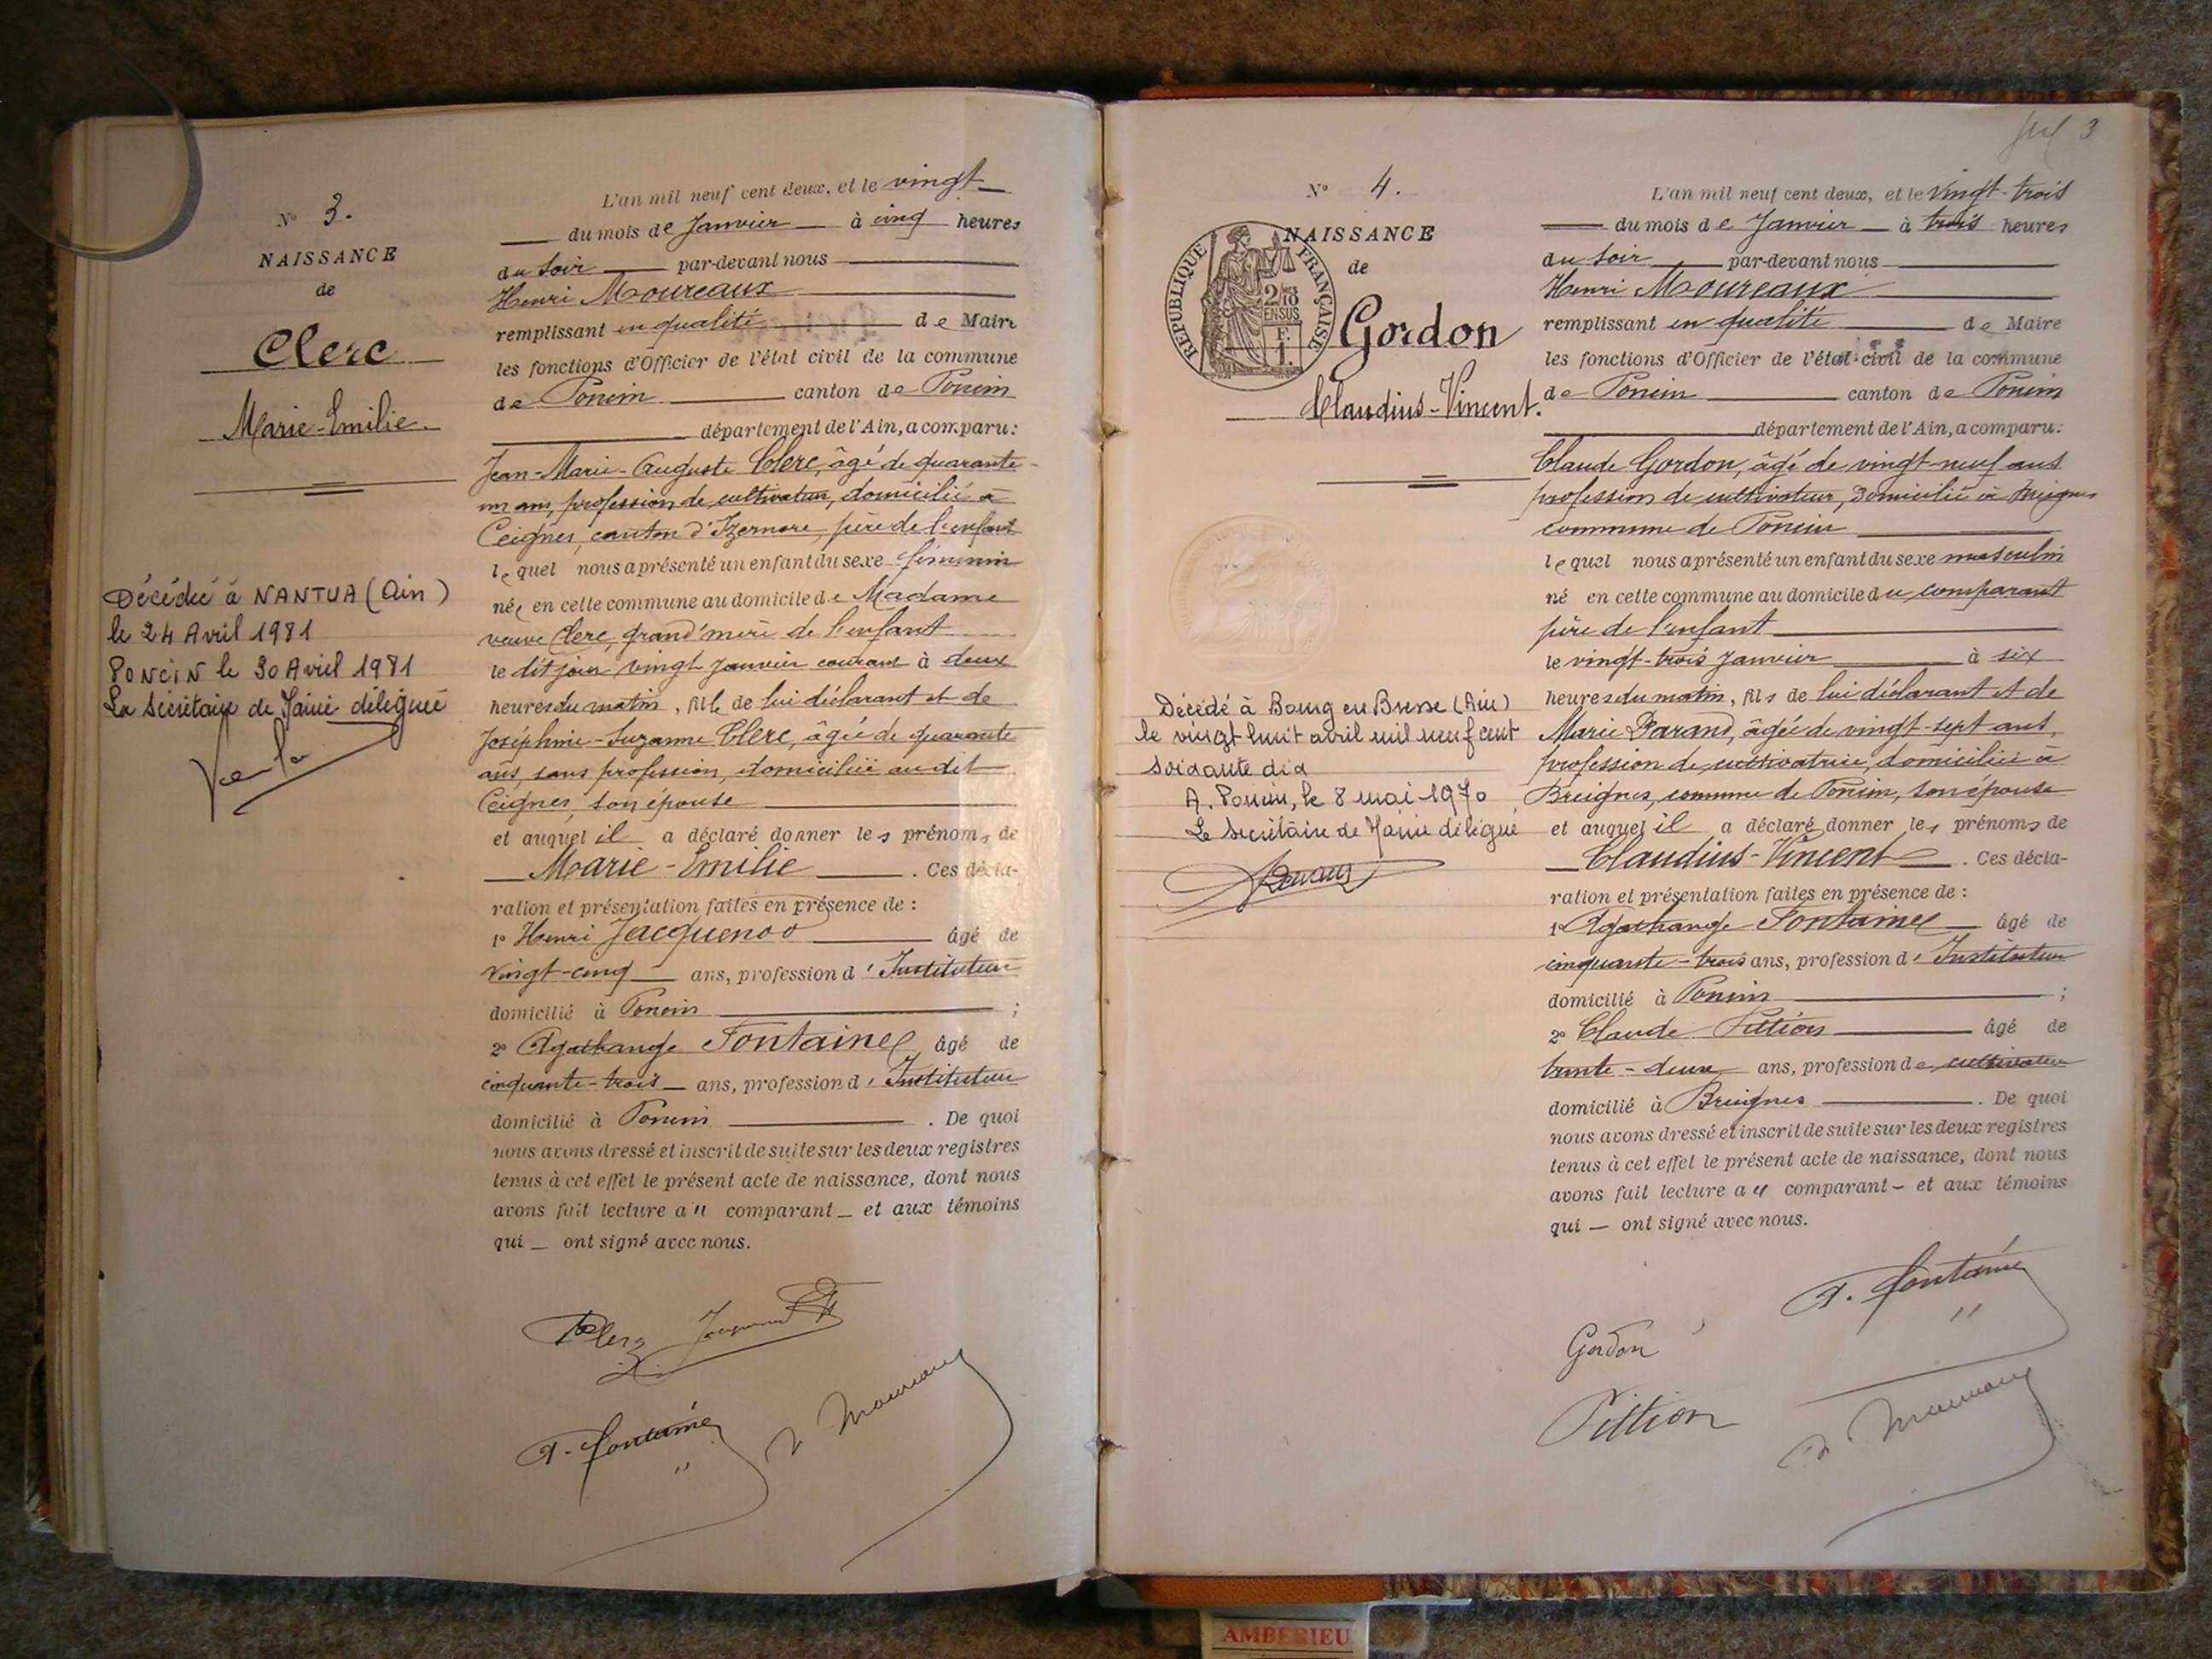 N° 3.
NAISSANCE
de
Clerc
Marie-Emilie.
Décédée à NANTUA (Ain)
le 24 Avril 1981
PONCIN le 30 Avril 1981
La Secrétaire de Mairie déléguée
L'an mil neuf cent deux, et le vingt
du mois de Janvier à cinq heures
du soir par-devant nous
Henri Moureaux
remplissant en qualité de Maire
les fonctions d'Officier de l'état civil de la commune
de Poncin canton de Poncin
département de l'Ain, a comparu:
Jean-Marie-Auguste Clerc, âgé de quarante-
un ans, profession de cultivateur, domicilié à
Ceignes, canton d'Izernore, père de l'enfant
lequel nous a présenté un enfant du sexe féminin
née en cette commune au domicile de Madame
veuve Clerc, grand'mère de l'enfant
le dit jour vingt Janvier courant à deux
heures du matin, fille de lui déclarant et de
Joséphine-Suzanne Clerc, âgée de quarante
ans, sans profession, domiciliée au dit
Ceignes, son épouse
et auquel il a déclaré donner les prénoms de
Marie-Emilie. Ces décla-
ration et présentation faites en présence de :
1° Henri Jacquenod âgé de
vingt-cinq ans, profession d'Instituteur
domicilié à Poncin ;
2° Agathange Fontaine âgé de
cinquante-trois ans, profession d'Instituteur
domicilié à Poncin . De quoi
nous avons dressé et inscrit de suite sur les deux registres
tenus à cet effet le présent acte de naissance, dont nous
avons fait lecture au comparant _ et aux témoins
qui _ ont signé avec nous.
Clerc
A. Fontaine
H Moureaux
3
N° 4.
NAISSANCE
de
RÉPUBLIQUE FRANÇAISE
2/10
EN SUS
F.
1.
Gordon
Claudius-Vincent.
Décédé à Bourg en Bresse (Ain)
le vingt huit avril mil neuf cent
soixante dix
A. Poncin, le 8 mai 1970
Le Secrétaire de Mairie délégué
L'an mil neuf cent deux, et le vingt-trois
du mois de Janvier à trois heures
du soir par-devant nous
Henri Moureaux
remplissant en qualité de Maire
les fonctions d'Officier de l'état civil de la commune
de Poncin canton de Poncin
département de l'Ain, a comparu:
Claude Gordon, âgé de vingt-neuf ans
profession de cultivateur, domicilié à Breignes
commune de Poncin
lequel nous a présenté un enfant du sexe masculin
né en cette commune au domicile du comparant
père de l'enfant
le vingt-trois Janvier à six
heures du matin, fils de lui déclarant et de
Marie Barand, âgée de vingt-sept ans,
profession de cultivatrice, domiciliée à
Breignes, commune de Poncin, son épouse
et auquel il a déclaré donner les prénoms de
Claudius-Vincent . Ces décla-
ration et présentation faites en présence de :
1° Agathange Fontaine âgé de
cinquante-trois ans, profession d'Instituteur
domicilié à Poncin ;
2° Claude Pittion âgé de
trente-deux ans, profession de cultivateur
domicilié à Breignes . De quoi
nous avons dressé et inscrit de suite sur les deux registres
tenus à cet effet le présent acte de naissance, dont nous
avons fait lecture au comparant _ et aux témoins
qui _ ont signé avec nous.
A. Fontaine
Gordon
Pittion
H Moureaux
AMBERIEU